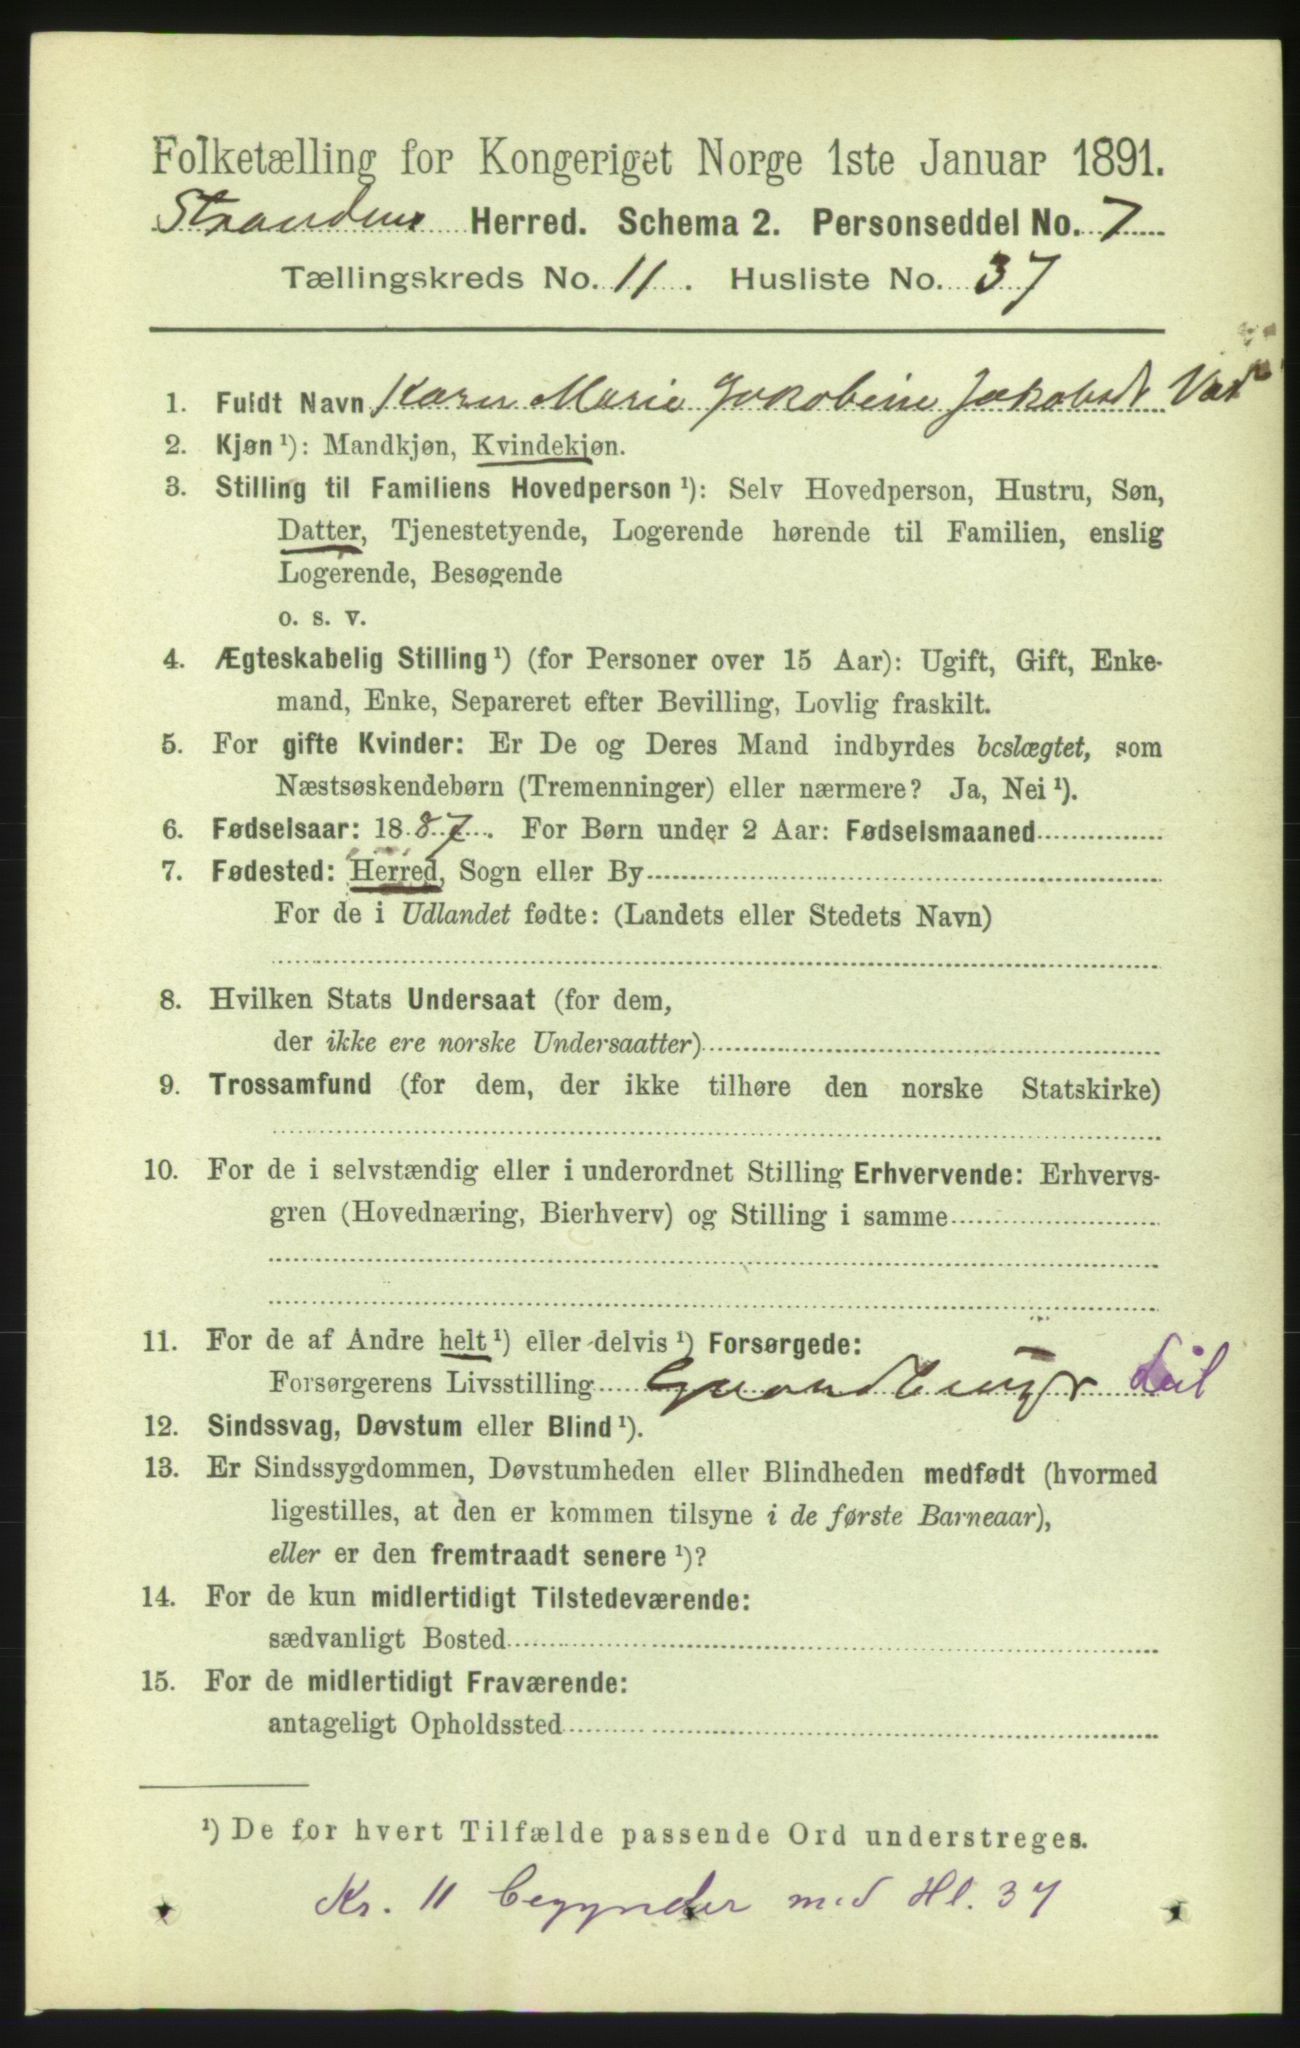 Folketælling for Kongeriget Norge 1ste Januar 1891.
Stranden Herred. Schema 2. Personseddel No. 7
Tællingskreds No. 11. Husliste No. 37
1. Fuldt Navn Karen Marie Jakobine Jakobsdt
2. Kjøn ¹): Mandkjøn, Kvindekjøn.
3. Stilling til Familiens Hovedperson ¹): Selv Hovedperson, Hustru, Søn,
Datter, Tjenestetyende, Logerende hørende til Familien, enslig
Logerende, Besøgende
o. s. v.
4. Ægteskabelig Stilling ¹) (for Personer over 15 Aar): Ugift, Gift, Enke-
mand, Enke, Separeret efter Bevilling, Lovlig fraskilt.
5. For gifte Kvinder: Er De og Deres Mand indbyrdes beslægtet, som
Næstsøskendebørn (Tremenninger) eller nærmere? Ja, Nei ¹).
6. Fødselsaar: 1887. For Børn under 2 Aar: Fødselsmaaned
7. Fødested: Herred, Sogn eller By
For de i Udlandet fødte: (Landets eller Stedets Navn)
8. Hvilken Stats Undersaat (for dem,
der ikke ere norske Undersaatter)
9. Trossamfund (for dem, der ikke tilhøre den norske Statskirke)
10. For de i selvstændig eller i underordnet Stilling Erhvervende: Erhvervs-
gren (Hovednæring, Bierhverv) og Stilling i samme
11. For de af Andre helt ¹) eller delvis ¹) Forsørgede:
Forsørgerens Livsstilling
12. Sindssvag, Døvstum eller Blind ¹).
13. Er Sindssygdommen, Døvstumheden eller Blindheden medfødt (hvormed
ligestilles, at den er kommen tilsyne i de første Barneaar),
eller er den fremtraadt senere ¹)?
14. For de kun midlertidigt Tilstedeværende:
sædvanligt Bosted
15. For de midlertidigt Fraværende:
antageligt Opholdssted
¹) De for hvert Tilfælde passende Ord understreges.
Kr. 11 begynder med Hl. 37